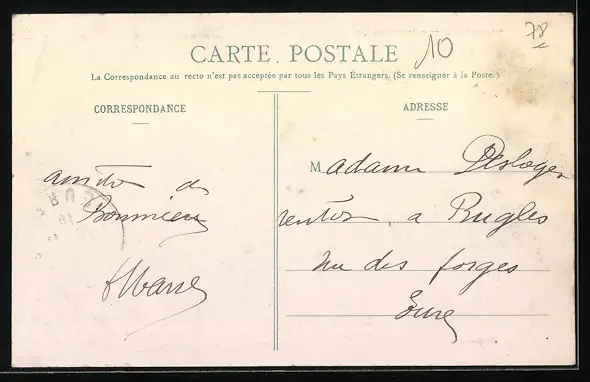 78
10
CARTE POSTALE
La Correspondance au recto n'est pas acceptée par tous les Pays Étrangers. (Se renseigner à la Poste.)
CORRESPONDANCE
ADRESSE
Madame Desloges
rentière a Rugles
rue des forges
Eure
amitiés de